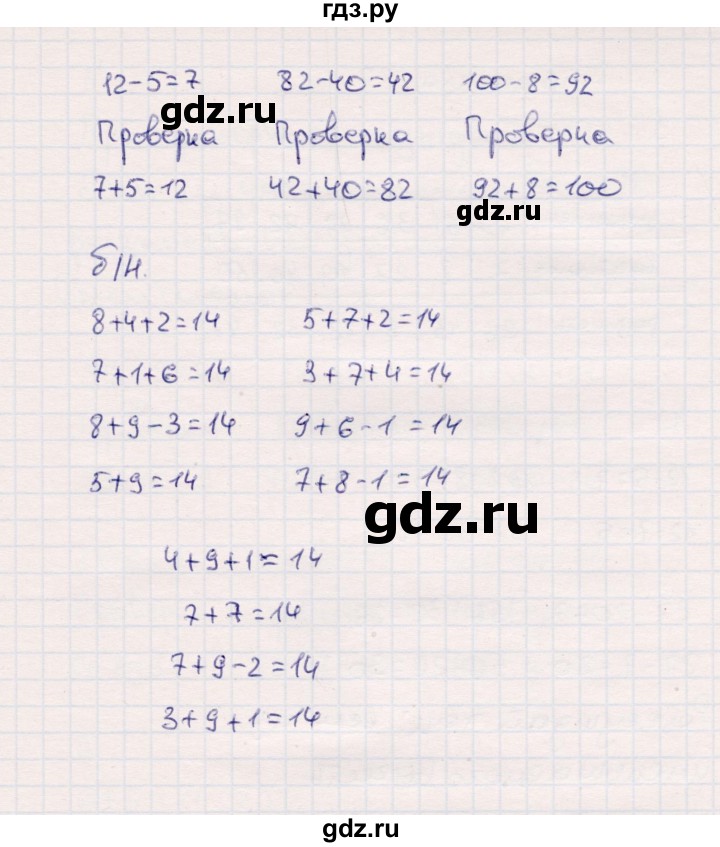 гдз.ру
12-5=7 82-40=42 100-8=92
gdz.ru
Проверка Проверка Проверка
7+5=12 42+40=82 92+8=100
gdz.ru
б/н.
8+4+2=14 5+7+2=14
7+1+6=14 3+7+4=14
8+9-3=14 9+6-1=14
5+9=14 7+8-1=14
gdz.ru
4+9+1=14
7+7=14
7+9-2=14
3+9+1=14
gdz.ru